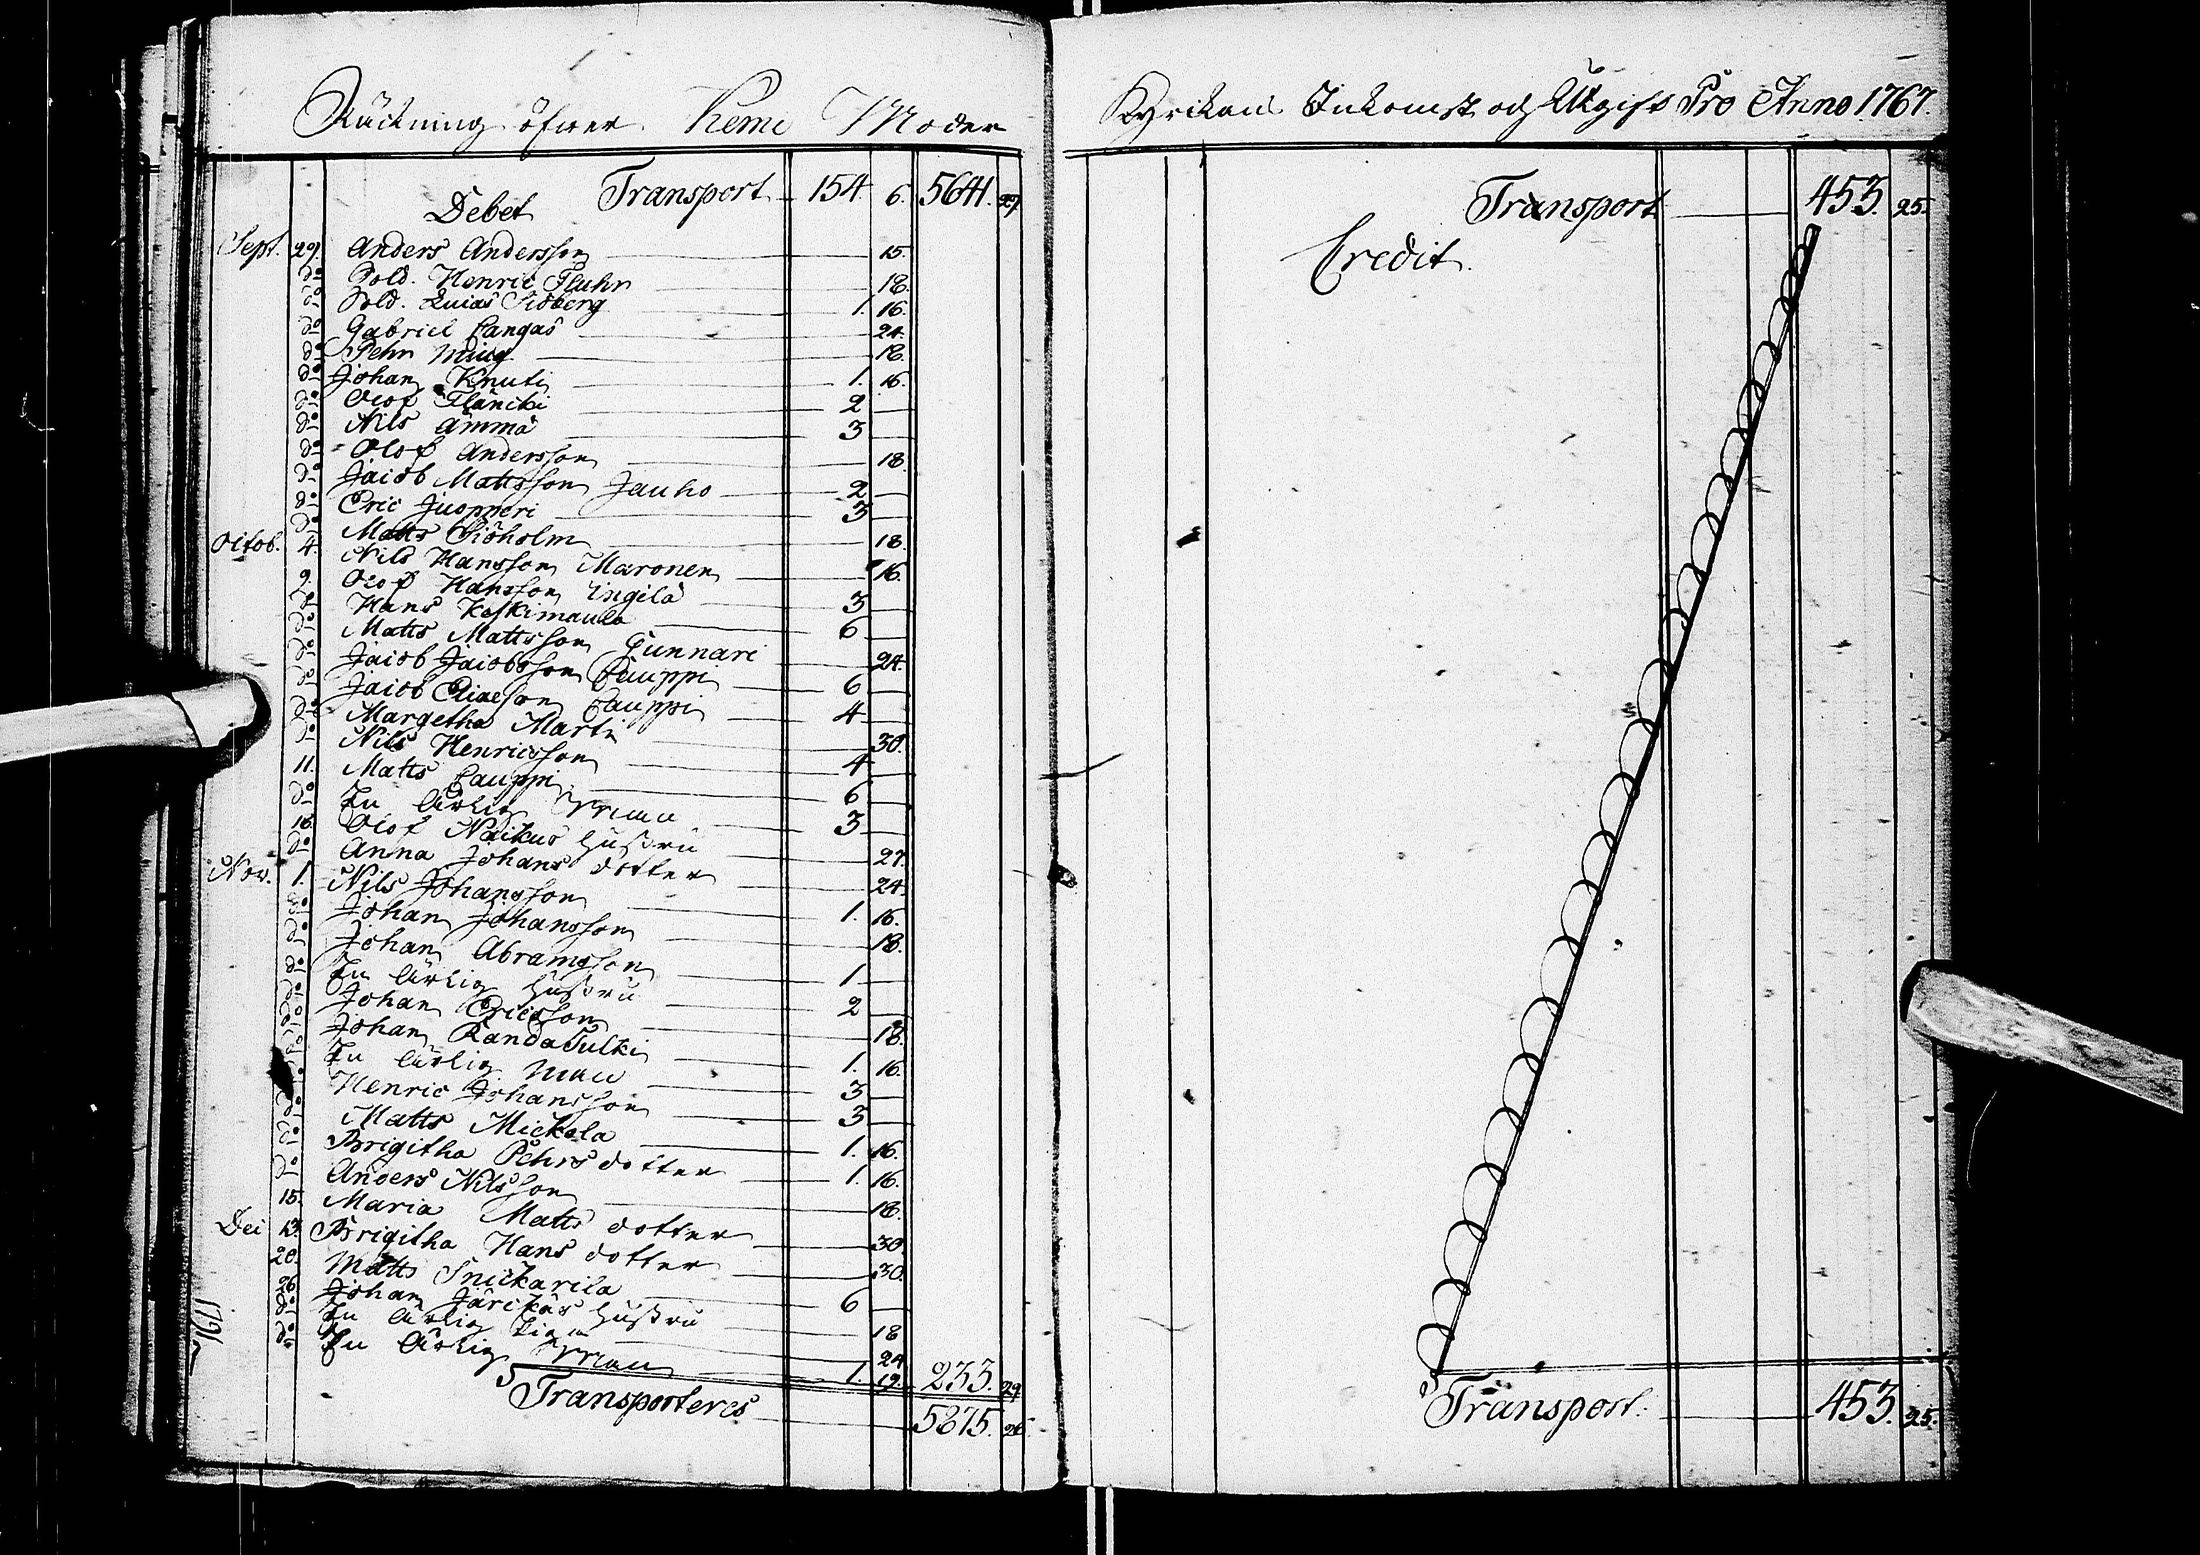 Räckning öfwer Kemi Moder
Debet Transport 154. 6. 5641. 29.
Sept. 29. Anders Andersson 15.
do Sold. Henric Fluhr 18.
do Sold. Lucas Sidberg 1. 16.
do Gabriel Cangas 24.
do Pehr 18.
do Johan Knuti 1. 16.
do Olof Fläncki 2 —
do Nils Ämmä 3 —
do Olof Andersson 18.
do Jacob Mattsson Jauho 2 —
do Eric Juopperi 3 —
do Matts Siöholm 18.
Octob. 4. Nils Hansson Maronen 16.
9. Olof Hansson Ingilä 3 —
do Hans Koskimaula 6 —
do Matts Mattsson Gunnari 24.
do Jacob Jacobsson Cauppi 6 —
do Jacob Eliaeson Cauppi 4 —
do Margetha Marti 30.
do Nils Henricsson 4 —
11. Matts Cauppi 6 —
do En ärlig 3 —
18. Olof Naikus hustru 27.
do Anna Johans dotter 24.
Nov. 1. Nils Johansson 1. 16.
do Johan Johansson 18.
do Johan Abramsson 1 —
do En ärlig hustru 2 —
do Johan Ericsson 18.
do Johan Randa Tulki 1. 16.
do En ärlig man 3 —
do Henric Johansson 3 —
do Matts Mickola 1. 16.
do Brigitha Pehrs dotter 1. 16.
do Anders Nilsson 18.
15. Maria Matts dotter 30.
Dec 13. Brigitha Hans dotter 30.
20. Matts Snickarila 6 —
26. Johan Järickäs hustru 18
do En ärlig 24
do En ärlig 1. 19. 233. 29
Transporteres 5875. 26.
1767
Kyrckans Inkomst och Utgift Pro Anno 1767.
Transport 453. 25.
Credit.
Transport. 453. 25.